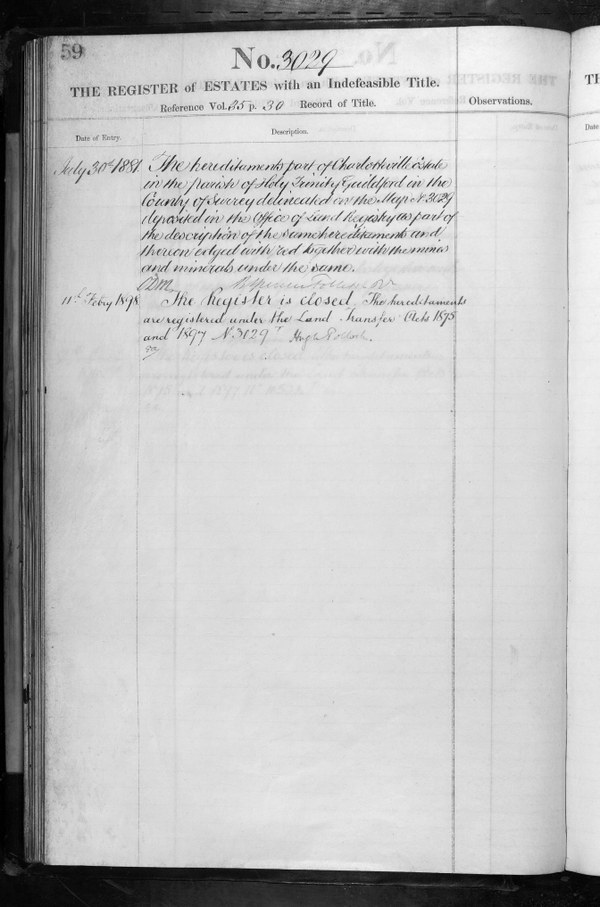 59
No. 3029
THE REGISTER of ESTATES with an Indefeasible Title.
Reference Vol. 25 p. 30 Record of Title.
Observations.
Date of Entry.
Description.
July 30th 1881. The hereditaments part of Charlotteville Estate
in the parish of Holy Trinity Guildford in the
County of Surrey delineated on the Map No. 3029
deposited in the Office of Land Registry as part of
the description of the same hereditaments and
thereon edged with red together with the mines
and minerals under the same.
Follett
11th Febry 1898 The Register is closed. The hereditaments
are registered under the Land Transfer Acts 1875
and 1897 No. 3029 Hugh Pollock.
TH
Date